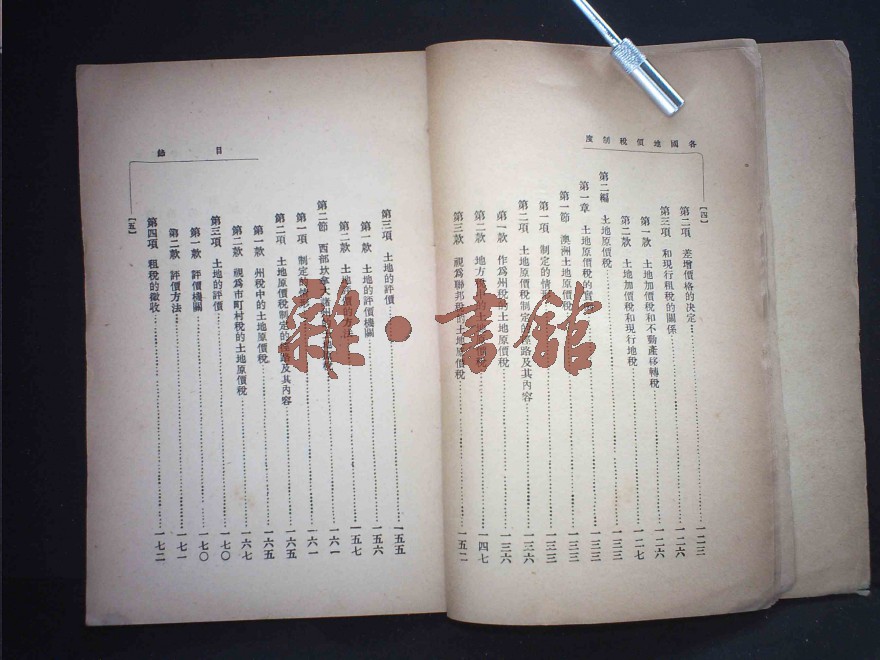 各國地價稅制度
[四]
第二項 差增價格的決定 一二三
第三項 和現行租稅的關係 一二六
第一款 土地加價稅和不動產移轉稅 一二六
第二款 土地加價稅和現行地稅 一二七
第二編 土地原價稅 一三三
第一章 土地原價稅的實 一三三
第一節 澳洲土地原價稅 一三三
第一項 制定的情 一三三
第二項 土地原價稅制定的經路及其內容 一三六
第一款 作爲州稅的土地原價稅 一三六
第二款 地方稅 土地原價稅 一四七
第三款 視爲聯邦稅的土地原價稅 一五二
目錄
第三項 土地的評價 一五五
第一款 土地的評價機關 一五六
第二款 土地評價的方法 一五七
第二節 西部坎拿大諸州 一六一
第一項 制定的情形 一六一
第二項 土地原價稅制定的經路及其內容 一六五
第一款 州稅中的土地原價稅 一六五
第二款 視爲市町村稅的土地原價稅 一六七
第三項 土地的評價 一七〇
第一款 評價機關 一七〇
第二款 評價方法 一七一
第四項 租稅的徵收 一七二
[五]
雜·書館